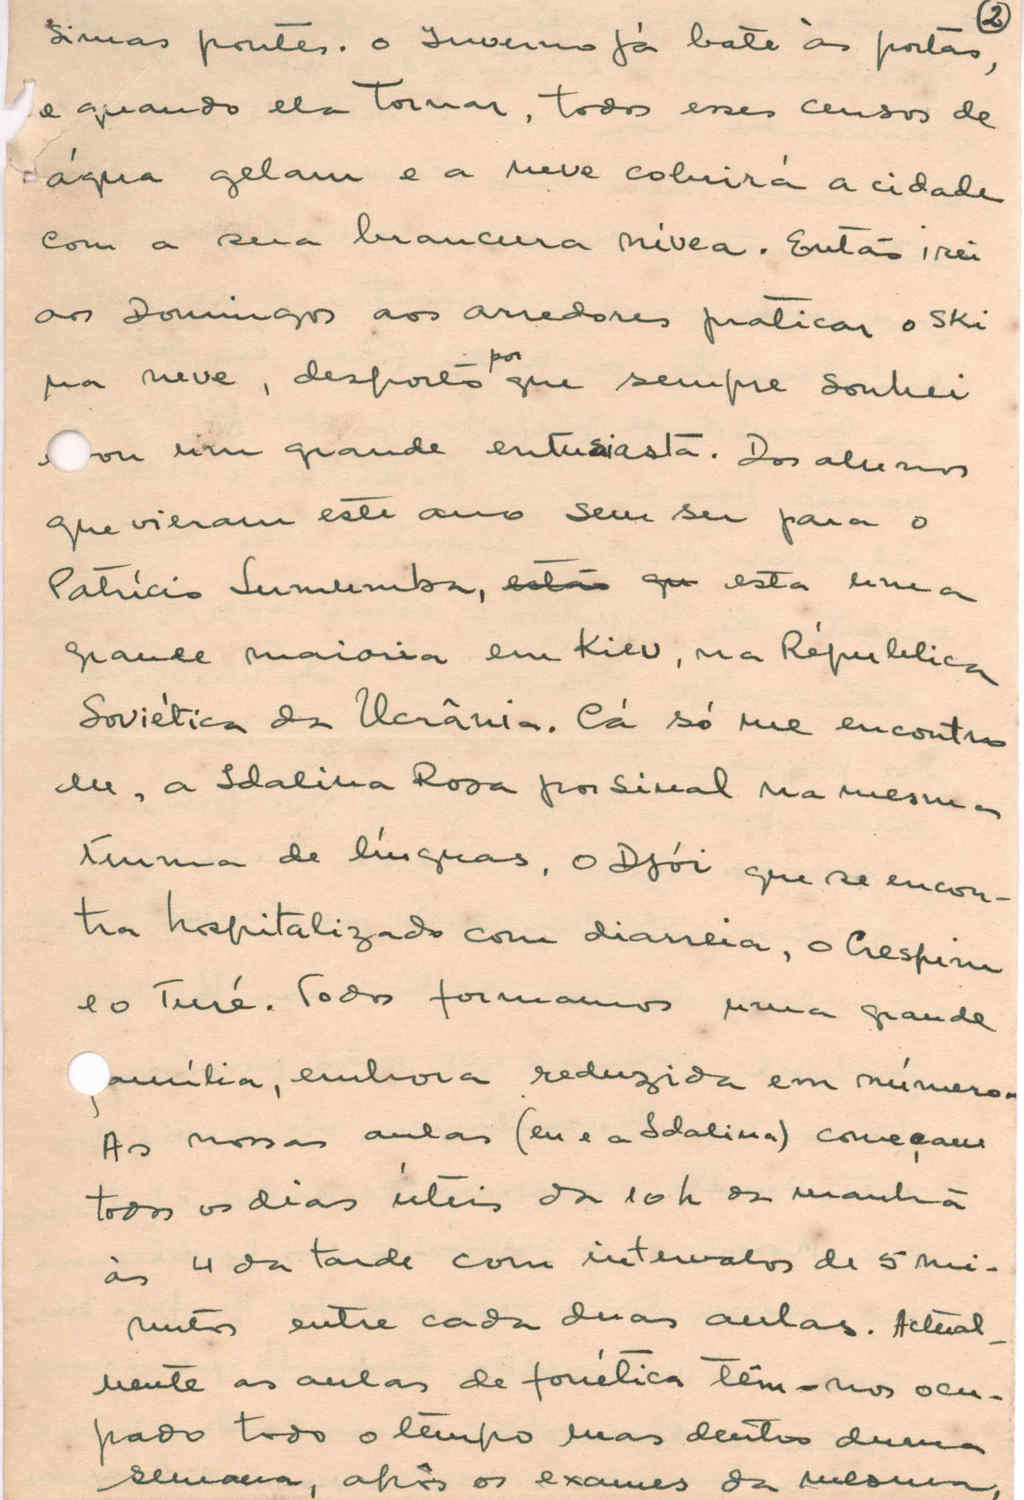 2
simas pontes. O Inverno já bate às portas,
e quando ela tornar, todos esses censos de
água gelam e a neve cobrirá a cidade
com a sua brancura nívea. Então irei
aos Domingos aos arredores praticar o ski
na neve, desporto por que sempre sonhei
ou um grande entusiasta. Dos alunos
que vieram este ano sem ser para o
Patrício Lumumba, estão qu esta uma
grande maioria em Kiev, na Répública
Soviética da Ucrânia. Cá só me encontro
eu, a Idalina Rosa por sinal na mesma
turma de línguas, o Djói que se encon-
tra hospitalizado com diarreia, o Crespim
e o Turé. Todos formamos uma grande
família, embora reduzida em número.
As nossas aulas (eu e a Idalina) começam
todos os dias úteis da 10h da manhã
às 4 da tarde com intervalos de 5 mi-
nutos entre cada duas aulas. Actual-
mente as aulas de fonética têm-nos ocu-
pado todo o tempo mas dentro duma
semana, após os exames da mesma,